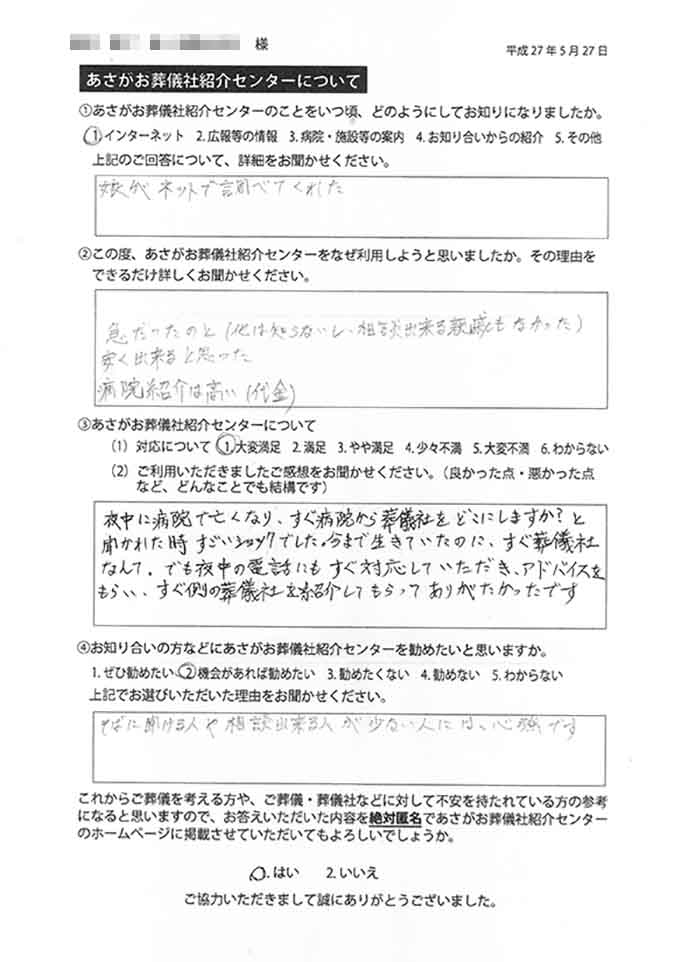 様
平成27年5月27日
あさがお葬儀社紹介センターについて
①あさがお葬儀社紹介センターのことをいつ頃、どのようにしてお知りになりましたか。
1.インターネット 2.広報等の情報 3.病院・施設等の案内 4.お知り合いからの紹介 5.その他
上記のご回答について、詳細をお聞かせください。
娘が ネットで調べてくれた
②この度、あさがお葬儀社紹介センターをなぜ利用しようと思いましたか。その理由を
できるだけ詳しくお聞かせください。
急だったのと(他は知らないし、相談出来る親戚もなかった)
安く出来ると思った
病院紹介は高い(代金)
③あさがお葬儀社紹介センターについて
(1) 対応について 1.大変満足 2.満足 3.やや満足 4.少々不満 5.大変不満 6.わからない
(2) ご利用いただきましたご感想をお聞かせください。(良かった点・悪かった点
など、どんなことでも結構です)
夜中に病院で亡くなり、すぐ病院から葬儀社をどこにしますか?と
聞かれた時 すごいショックでした。今まで生きていたのに、すぐ葬儀社
なんて。でも夜中の電話にもすぐ対応していただき、アドバイスを
もらい、すぐ側の葬儀社を紹介してもらってありがたかったです
④お知り合いの方などにあさがお葬儀社紹介センターを勧めたいと思いますか。
1.ぜひ勧めたい 2.機会があれば勧めたい 3.勧めたくない 4.勧めない 5.わからない
上記でお選びいただいた理由をお聞かせください。
そばに聞ける人や 相談出来る人が少ない人には、心強です
これからご葬儀を考える方や、ご葬儀・葬儀社などに対して不安を持たれている方の参考
になると思いますので、お答えいただいた内容を絶対匿名であさがお葬儀社紹介センター
のホームページに掲載させていただいてもよろしいでしょうか。
1.はい 2.いいえ
ご協力いただきまして誠にありがとうございました。